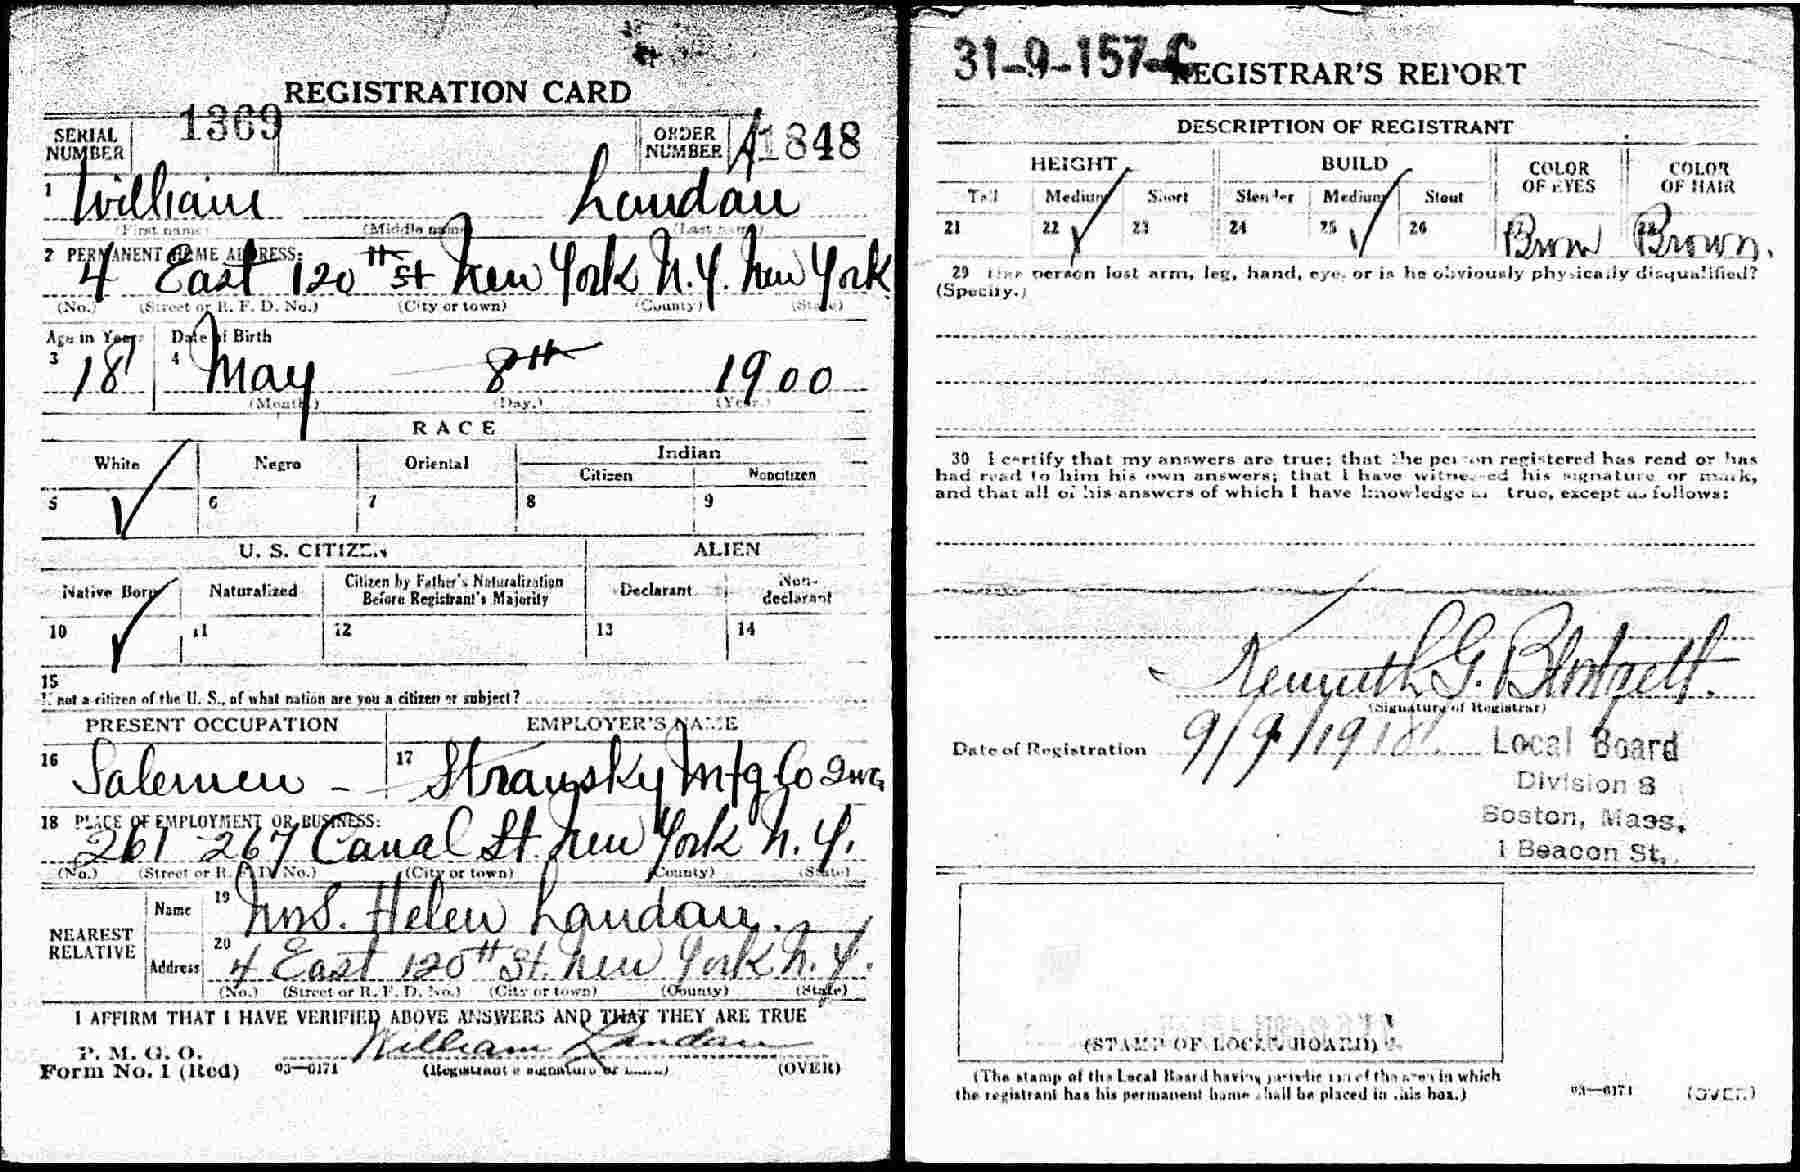 REGISTRATION CARD
SERIAL NUMBER 1369 ORDER NUMBER A1848
1 William Landau
(First name) (Middle name) (Last name)
2 PERMANENT HOME ADDRESS:
4 East 120th St New York N.Y. New York
(No.) (Street or R. F. D. No.) (City or town) (County) (State)
Age in Years Date of Birth
3 18 4 May 8th 1900
(Month.) (Day.) (Year.)
RACE
White Negro Oriental Indian
Citizen Noncitizen
5 6 7 8 9
U. S. CITIZEN ALIEN
Native Born Naturalized Citizen by Father's Naturalization Before Registrant's Majority Declarant Non-declarant
10 11 12 13 14
15
If not a citizen of the U. S., of what nation are you a citizen or subject?
PRESENT OCCUPATION EMPLOYER'S NAME
16 Salemen - 17 Stransky Mfg Co Inc,
18 PLACE OF EMPLOYMENT OR BUSINESS:
261 267 Canal St New York N.Y.
(No.) (Street or R. F. D. No.) (City or town) (County) (State)
NEAREST RELATIVE Name 19 Mrs. Helen Landau.
Address 20 4 East 120th St. New York N.Y.
(No.) (Street or R. F. D. No.) (City or town) (County) (State)
I AFFIRM THAT I HAVE VERIFIED ABOVE ANSWERS AND THAT THEY ARE TRUE
P. M. G. O.
Form No. 1 (Red) 03—6171 William Landau
(Registrant's signature or mark) (OVER)
31-9-157-C
REGISTRAR'S REPORT
DESCRIPTION OF REGISTRANT
HEIGHT BUILD COLOR OF EYES COLOR OF HAIR
Tall Medium Short Slender Medium Stout
21 22 23 24 25 26 27 Brown 28 Brown.
29 Has person lost arm, leg, hand, eye, or is he obviously physically disqualified?
(Specify.)
30 I certify that my answers are true; that the person registered has read or has
had read to him his own answers; that I have witnessed his signature or mark,
and that all of his answers of which I have knowledge are true, except as follows:
Kenneth G. Blodgett.
(Signature of Registrar)
Date of Registration 9/9/1918
Local Board
Division 8
Boston, Mass.
1 Beacon St.
(STAMP OF LOCAL BOARD)
(The stamp of the Local Board having jurisdiction of the area in which
the registrant has his permanent home shall be placed in this box.)
03—6171 (OVER)